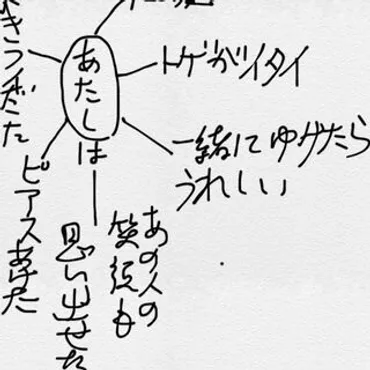 あたしは
トゲがイタイ
一緒にゆけたら
うれしい
あの人の
笑顔も
思い出せた
ピアスあけた